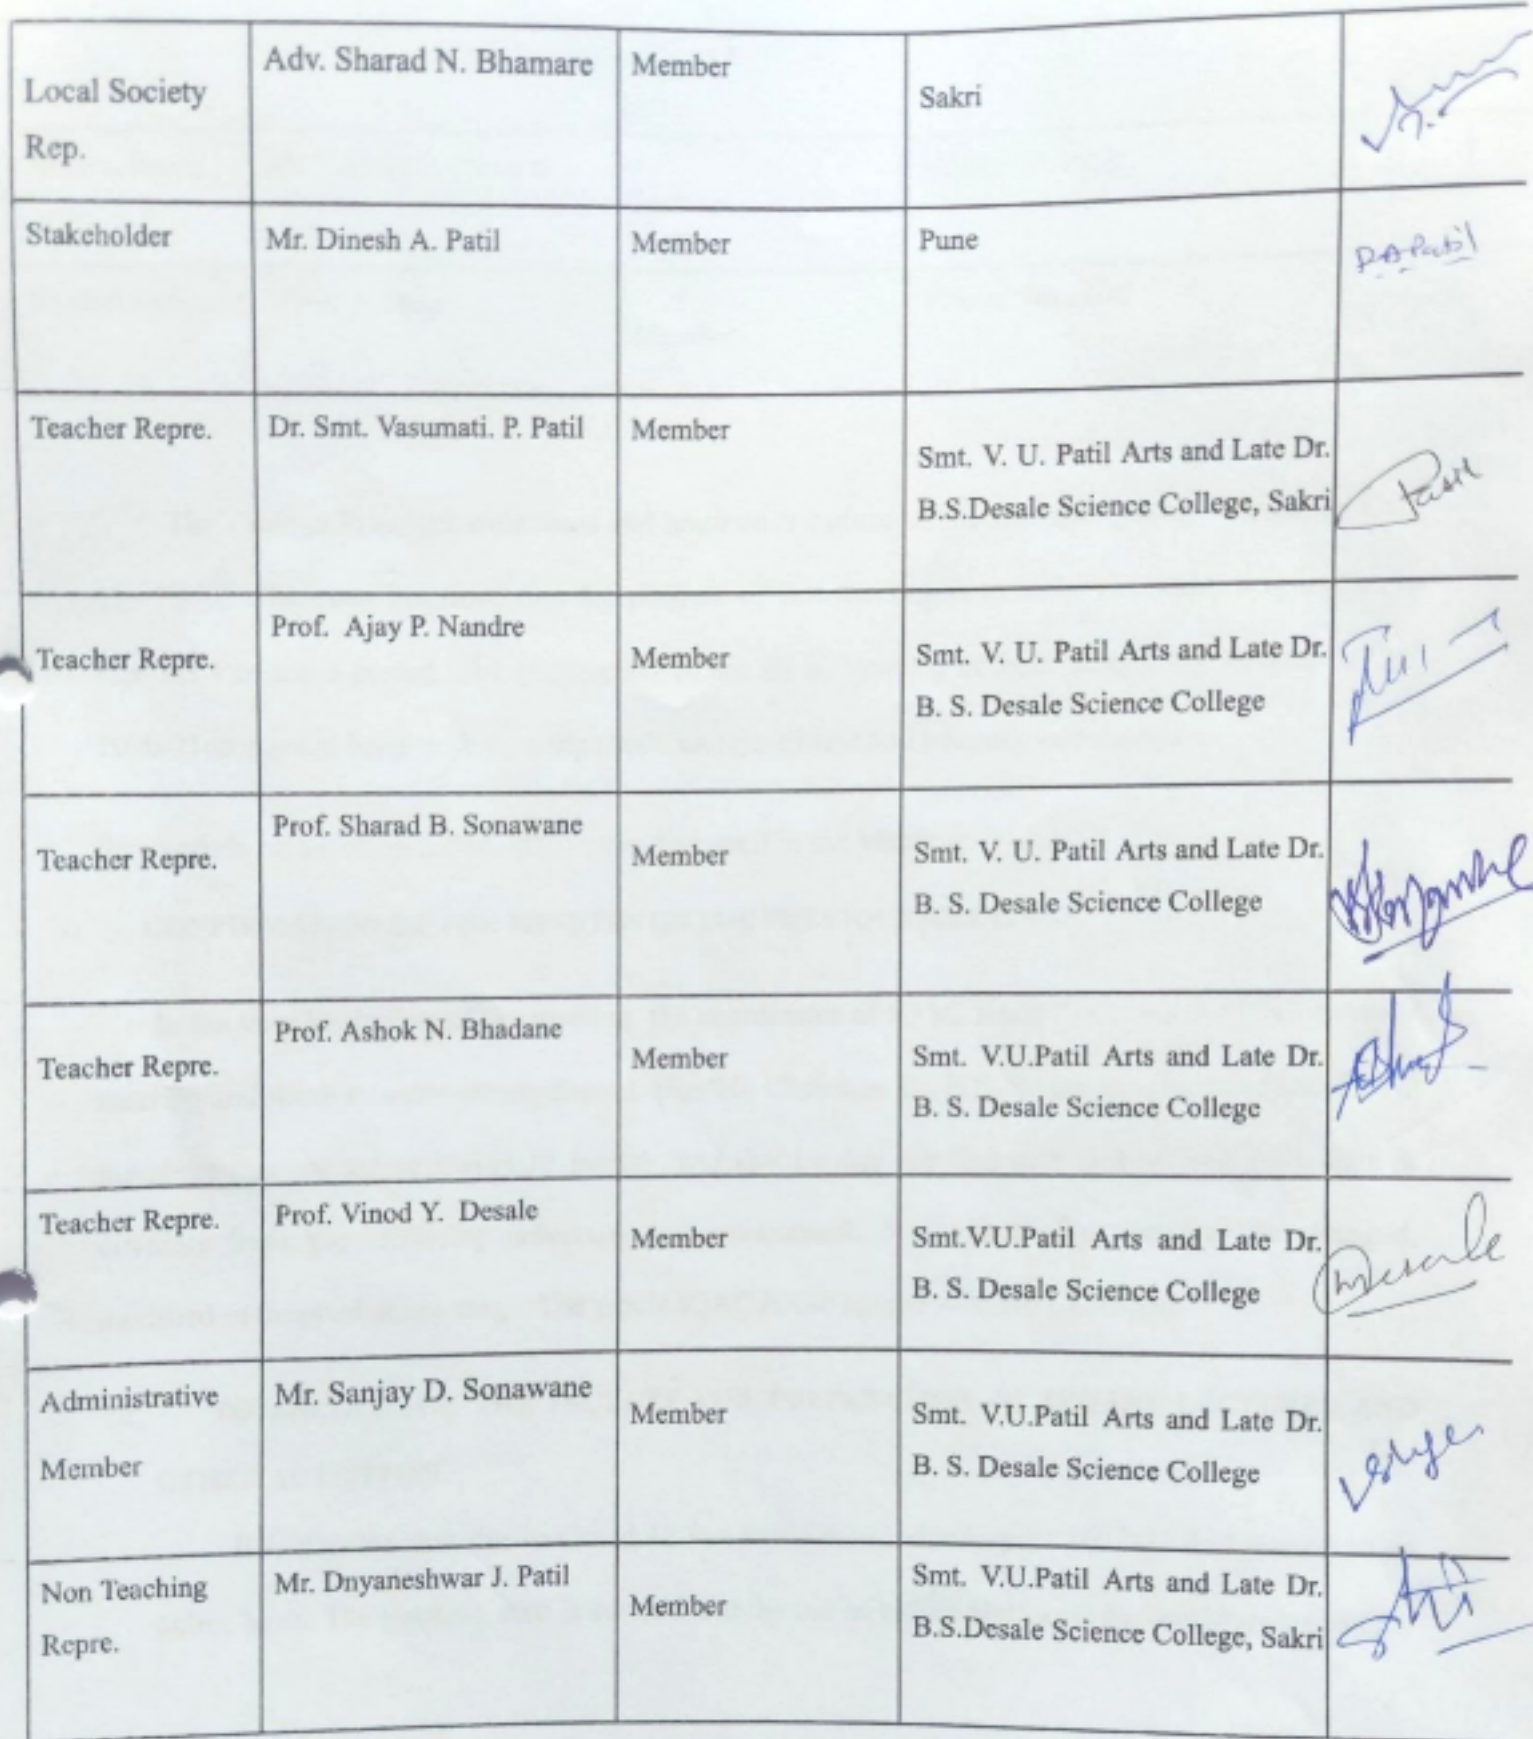 Local Society
Rep.
Adv. Sharad N. Bhamare
Member
Sakri
Stakeholder
Mr. Dinesh A. Patil
Member
Pune
D.A.Patil
Teacher Repre.
Dr. Smt. Vasumati. P. Patil
Member
Smt. V. U. Patil Arts and Late Dr.
B.S.Desale Science College, Sakri
Teacher Repre.
Prof. Ajay P. Nandre
Member
Smt. V. U. Patil Arts and Late Dr.
B. S. Desale Science College
Teacher Repre.
Prof. Sharad B. Sonawane
Member
Smt. V. U. Patil Arts and Late Dr.
B. S. Desale Science College
Teacher Repre.
Prof. Ashok N. Bhadane
Member
Smt. V.U.Patil Arts and Late Dr.
B. S. Desale Science College
Teacher Repre.
Prof. Vinod Y. Desale
Member
Smt.V.U.Patil Arts and Late Dr.
B. S. Desale Science College
Administrative
Member
Mr. Sanjay D. Sonawane
Member
Smt. V.U.Patil Arts and Late Dr.
B. S. Desale Science College
Non Teaching
Repre.
Mr. Dnyaneshwar J. Patil
Member
Smt. V.U.Patil Arts and Late Dr.
B.S.Desale Science College, Sakri